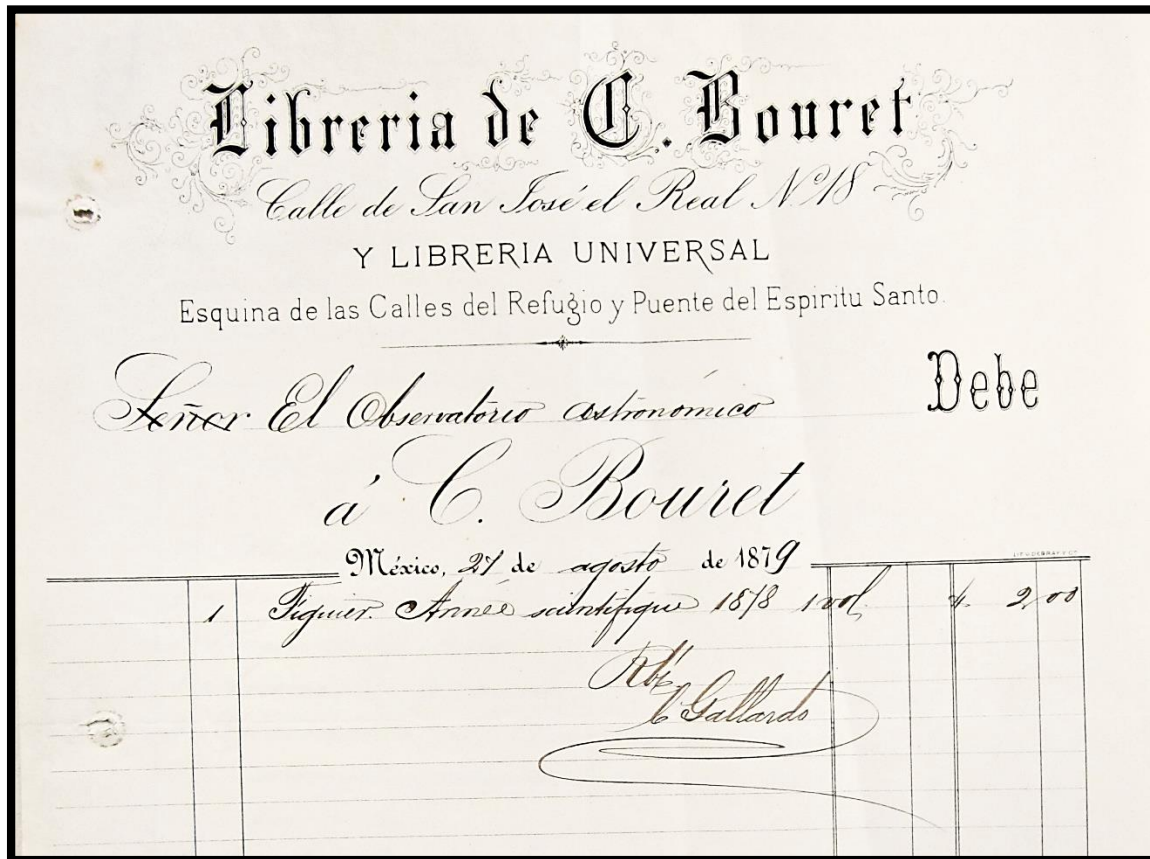 Libreria de C. Bouret
Calle de San José el Real Nº 18
Y LIBRERIA UNIVERSAL
Esquina de las Calles del Refugio y Puente del Espiritu Santo.
Señor El Observatorio astronómico Debe
á C. Bouret
México, 27 de agosto de 1879
1 Figuier. Année scientifique 1878 1 vol. $ 2 00
Rbí
C Gallardo